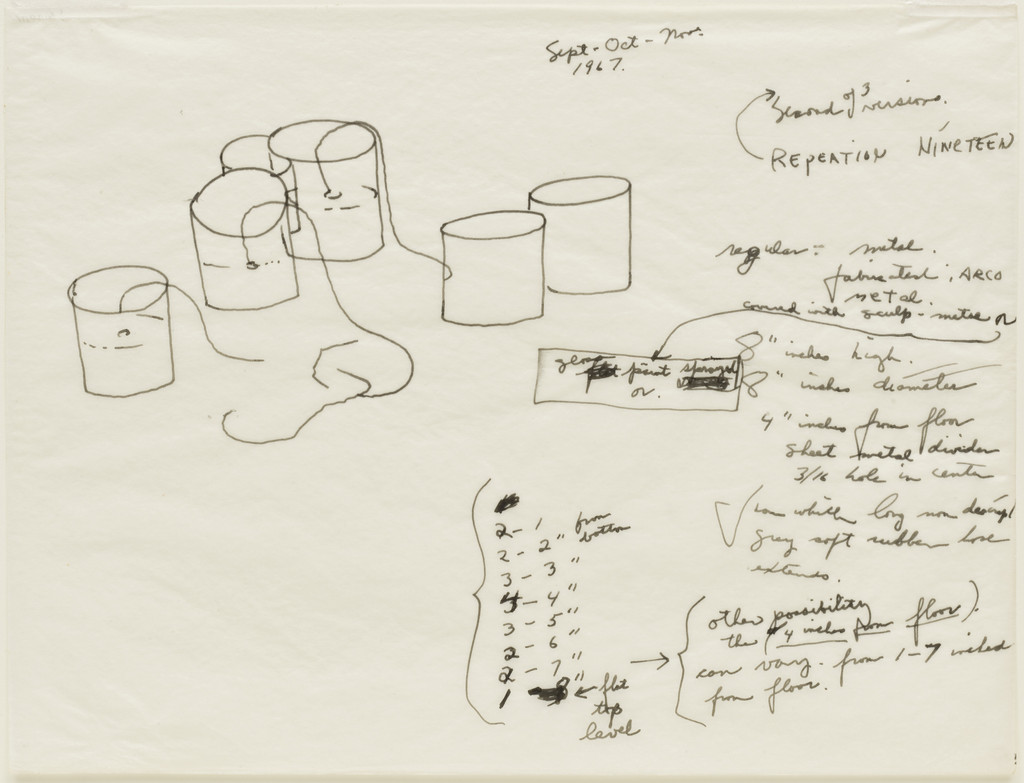 Sept - Oct - Nov.
1967.
Second of 3 versions.
REPEATION NINETEEN
regular: metal.
fabricated, ARCO
METAL.
covered with sculp-metal or
8" inches high.
8" inches diameter
4" inches from floor
sheet metal divider
3/16 hole in center
paint sprayed
or.
from which long non descript
grey soft rubber hose
extends.
2 - 1 " from bottom
2 - 2 "
3 - 3 "
4 - 4 "
3 - 5 "
2 - 6 "
2 - 7 "
1 - 8 ← flat
top
level
other possibility
the (4 inches from floor).
can vary. from 1-7 inches
from floor.